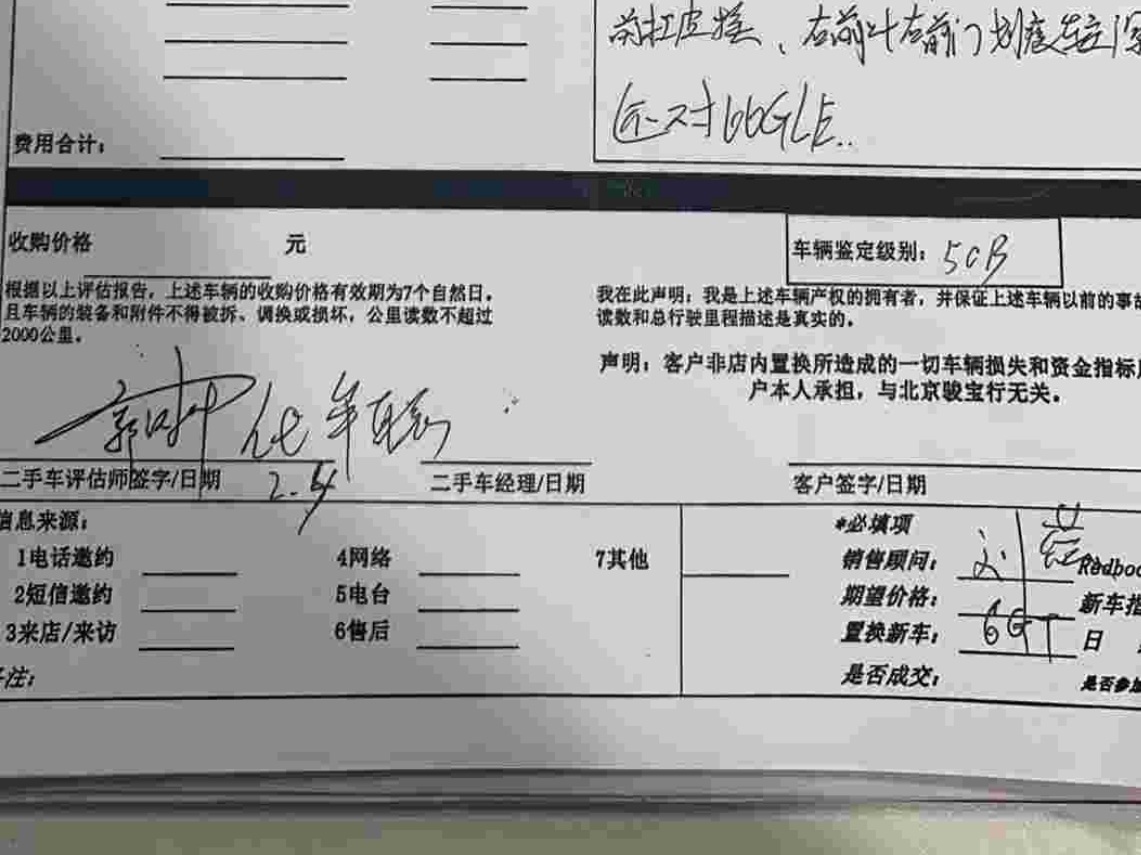 右前叶右前门划痕
还对
费用合计：
收购价格 元
车辆鉴定级别： 50B
根据以上评估报告，上述车辆的收购价格有效期为7个自然日。
且车辆的装备和附件不得被拆、调换或损坏，公里读数不超过
2000公里。
我在此声明：我是上述车辆产权的拥有者，并保证上述车辆以前的事
读数和总行驶里程描述是真实的。
声明：客户非店内置换所造成的一切车辆损失和资金指标
户本人承担，与北京骏宝行无关。
二手车评估师签字/日期 2.4
二手车经理/日期
客户签字/日期
信息来源：
1电话邀约
2短信邀约
3来店/来访
4网络
5电台
6售后
7其他
*必填项
销售顾问： 刘莹 Redboo
期望价格： 新车指
置换新车： 6GT 日
是否成交： 是否参加
注：